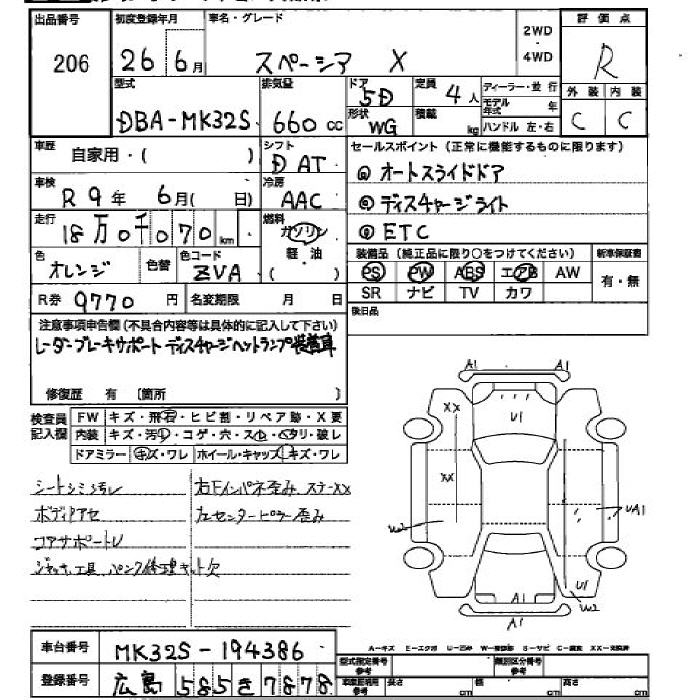 出品番号 初度登録年月 車名・グレード 2WD 評価点
206 26年 6月 スペーシア X 4WD R
型式 排気量 ドア 定員 ディーラー・並行 外装 内装
DBA-MK32S 660cc 5D 4人 モデル年式 年 C C
形状 積載
WG kg ハンドル 左・右
車歴 自家用・( ) シフト D AT セールスポイント(正常に機能するものに限ります)
車検 R9年 6月( 日) 冷房 AAC @ オートスライドドア
走行 18万0千070km 燃料 ガソリン @ ディスチャージライト
軽油 @ ETC
色 オレンジ 色替 色コード ZVA ( ) 装備品(純正品に限り○をつけてください) 新車保証書
PS PW ABS エアB AW 有・無
R券 9770円 名変期限 月 日 SR ナビ TV カワ
後日品
注意事項申告欄(不具合内容等は具体的に記入して下さい)
レーダーブレーキサポート ディスチャージヘッドランプ装着車
修復歴 有 [箇所 ]
検査員記入欄 FW キズ・飛石・ヒビ割・リペア跡・X要
内装 キズ・汚れ・コゲ・穴・スレ・ヘタリ・破レ
ドアミラー キズ・ワレ ホイール・キャップ キズ・ワレ
シートシミ汚レ 右Fインパネ歪み ステーXX
ボディアセ 左センターピラー歪み
コアサポートU
ジャッキ、工具、パンク修理キット欠
A1 A1
XX U1
XX
W2 UA1
U1
A1 W2
A1
車台番号 MK32S-194386
登録番号 広島 585 き 7878
A=キズ E=エクボ U=凹み S=サビ XX=交換済
型式指定番号 参考 類別区分番号 参考
長さ cm 幅 cm 高さ cm